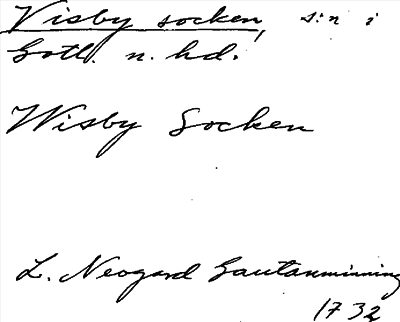 Visby socken, s:n i
Gotl. n. hd.
Wisby Socken
L. Neogard Gautauminning
1732